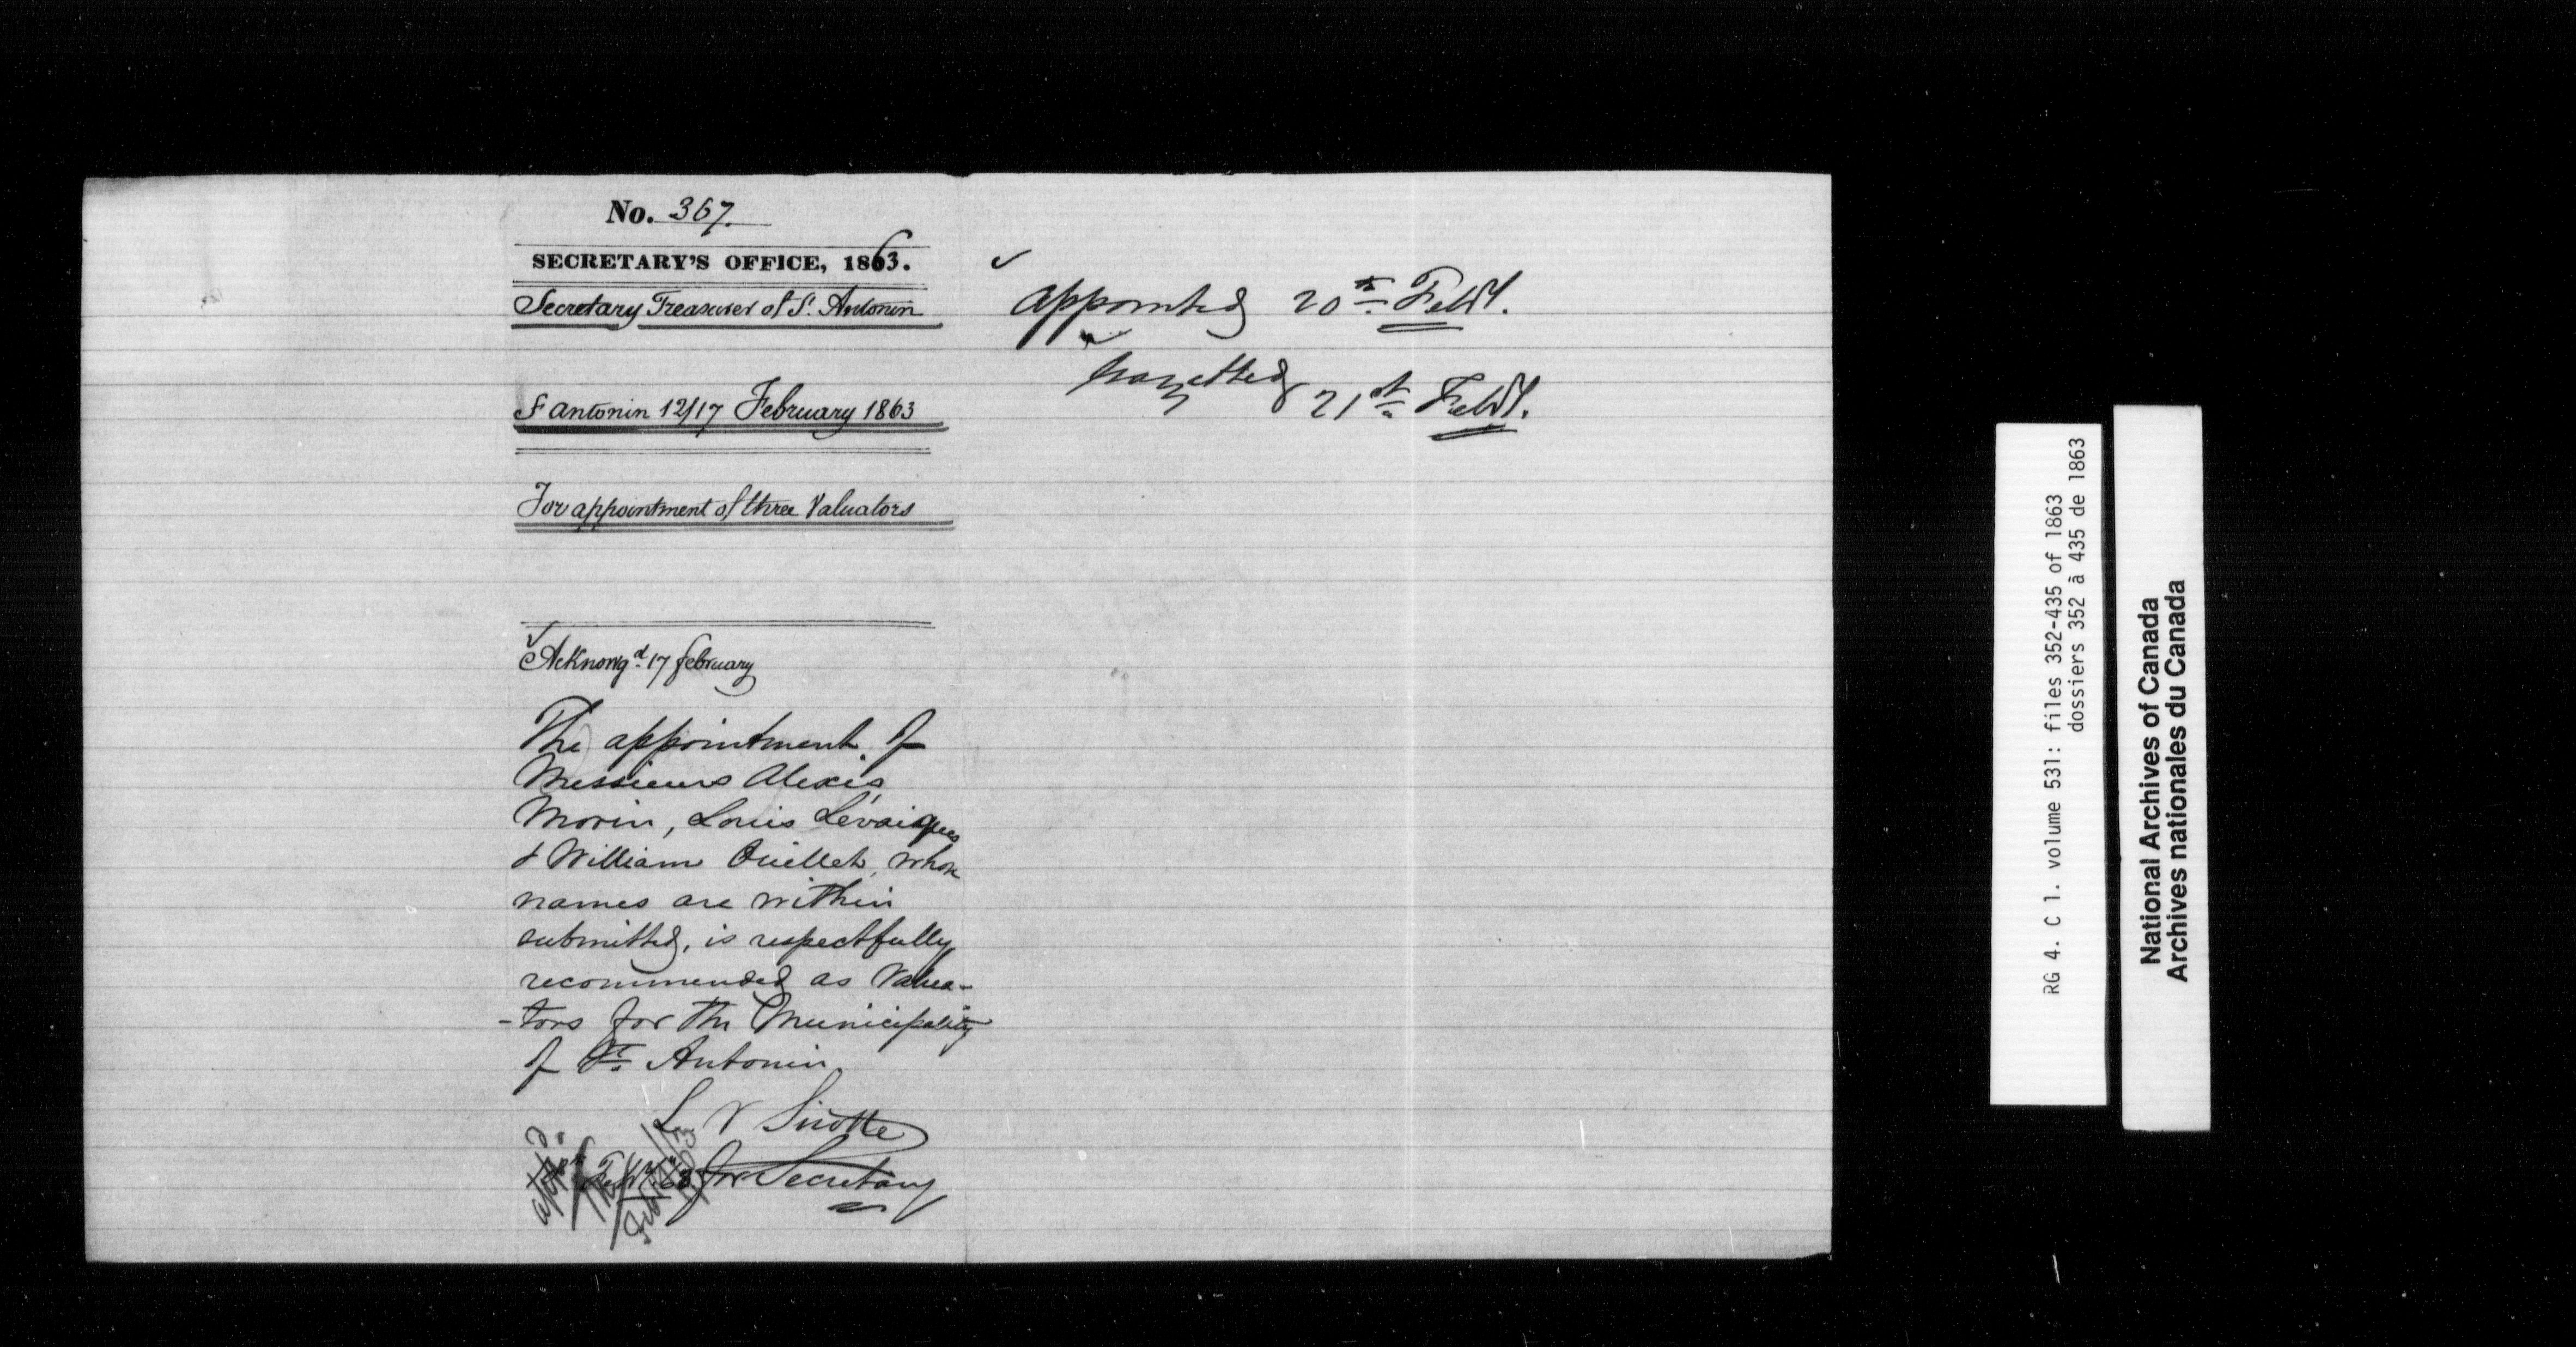 No. 367.
SECRETARY'S OFFICE, 1863.
Secretary Treasurer of St. Antonin
St Antonin 12/17 February 1863
For appointment of three Valuators
Acknowg.d 17 february
The appointment of
Messieurs Alexis
Morin, Louis
& William Ouellet, whose
names are within
submitted, is respectfully
recommended as Valua-
-tors for the Municipality
of St. Antonin
L V Sicotte
Secretary
appd.
appointed 20th Feb.
Gazetted 21st Feb.
RG 4. C 1. volume 531: files 352-435 of 1863
dossiers 352 à 435 de 1863
National Archives of Canada
Archives nationales du Canada